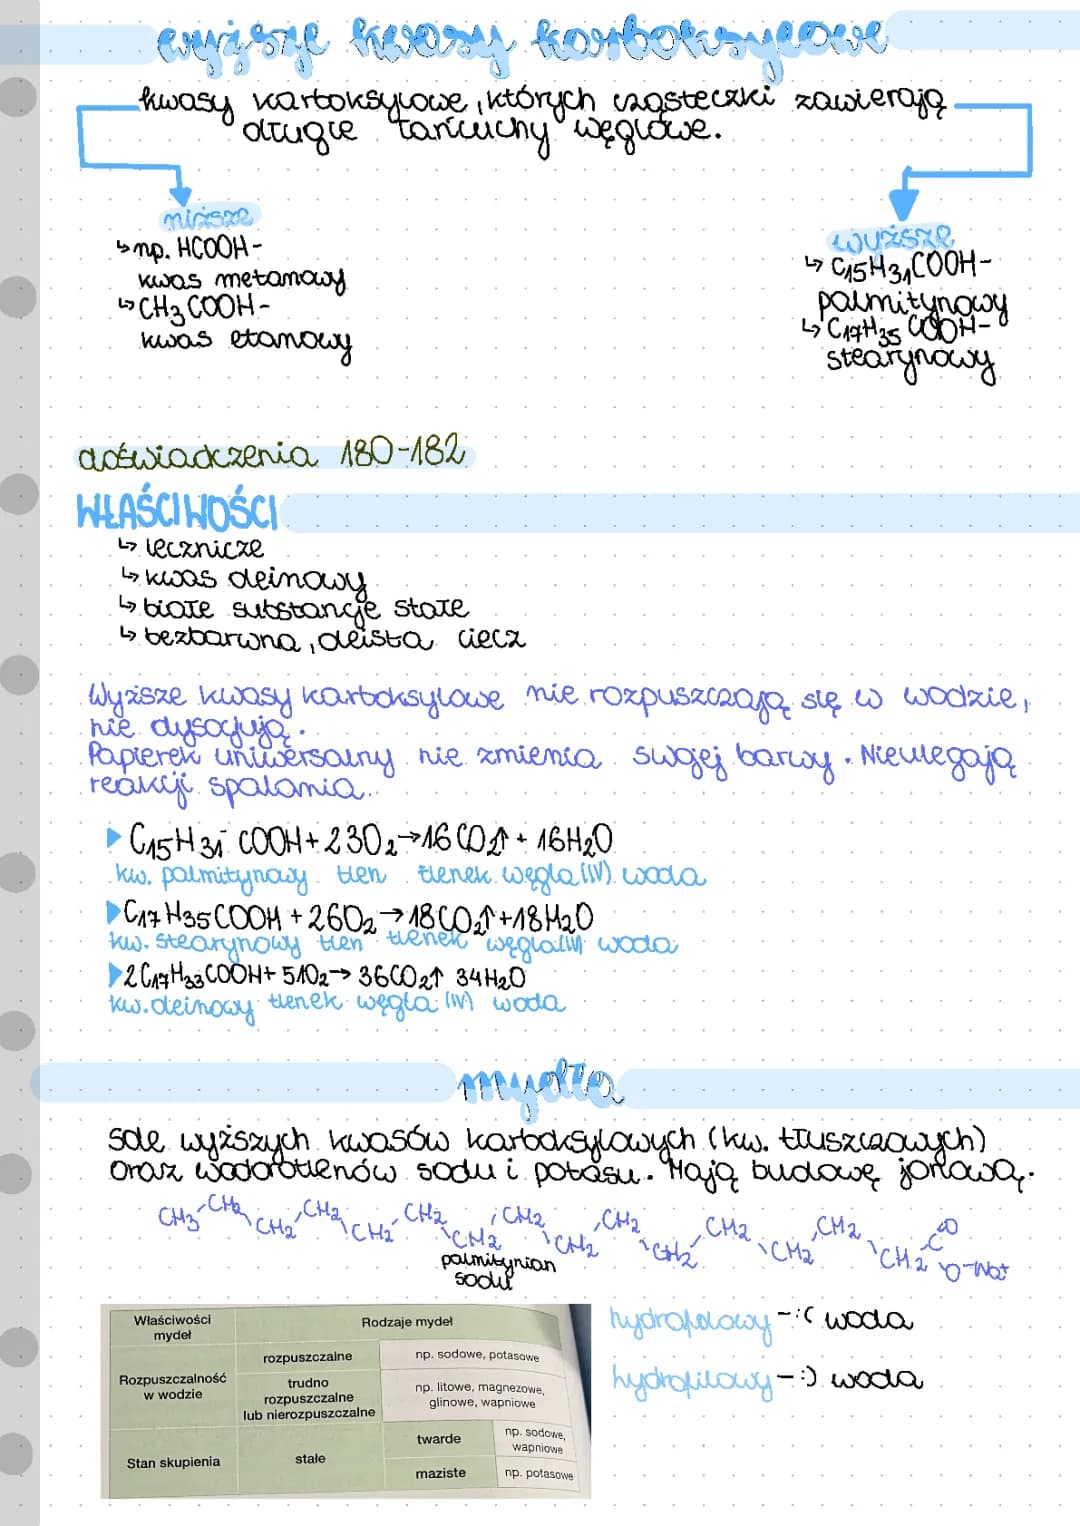 wyższe kwasy karboksylowe
kwasy karboksylowe, których cząsteczki zawierają
długie łańcuchy węglowe.
niższe
↳ np. HCOOH -
kwas metanowy
↳ CH₃COOH -
kwas etanowy
wyższe
↳ C₁₅H₃₁COOH -
palmitynowy
↳ C₁₇H₃₅COOH -
stearynowy
doświadczenia 180-182
WŁAŚCIWOŚCI
↳ lecznicze
↳ kwas oleinowy
↳ białe substancje stałe
↳ bezbarwna, oleista ciecz
Wyższe kwasy karboksylowe nie rozpuszczają się w wodzie,
nie dysocjują.
Papierek uniwersalny nie zmienia swojej barwy. Nie ulegają
reakcji spalania.
▶ C₁₅H₃₁COOH + 23O₂ → 16CO₂↑ + 16H₂O
kw. palmitynowy tlen tlenek węgla (IV) woda
▶ C₁₇H₃₅COOH + 26O₂ → 18CO₂↑ + 18H₂O
kw. stearynowy tlen tlenek węgla (IV) woda
▶ 2C₁₇H₃₃COOH + 51O₂ → 36CO₂↑ 34H₂O
kw. oleinowy tlenek węgla (IV) woda
mydła
sole wyższych kwasów karboksylowych (kw. tłuszczowych)
oraz wodorotlenów sodu i potasu. Mają budowę jonową.
CH₃ CH₂ CH₂ CH₂ CH₂ CH₂ CH₂ CH₂ CH₂ CH₂ CH₂ CH₂ CH₂ CH₂ CH₂ C O O⁻Na⁺
palmitynian
sodu
Właściwości mydeł
Rodzaje mydeł
Rozpuszczalność w wodzie
rozpuszczalne
np. sodowe, potasowe
trudno rozpuszczalne lub nierozpuszczalne
np. litowe, magnezowe, glinowe, wapniowe
Stan skupienia
stałe
twarde
np. sodowe, wapniowe
maziste
np. potasowe
hydrofobowy - :( woda
hydrofilowy - :) woda